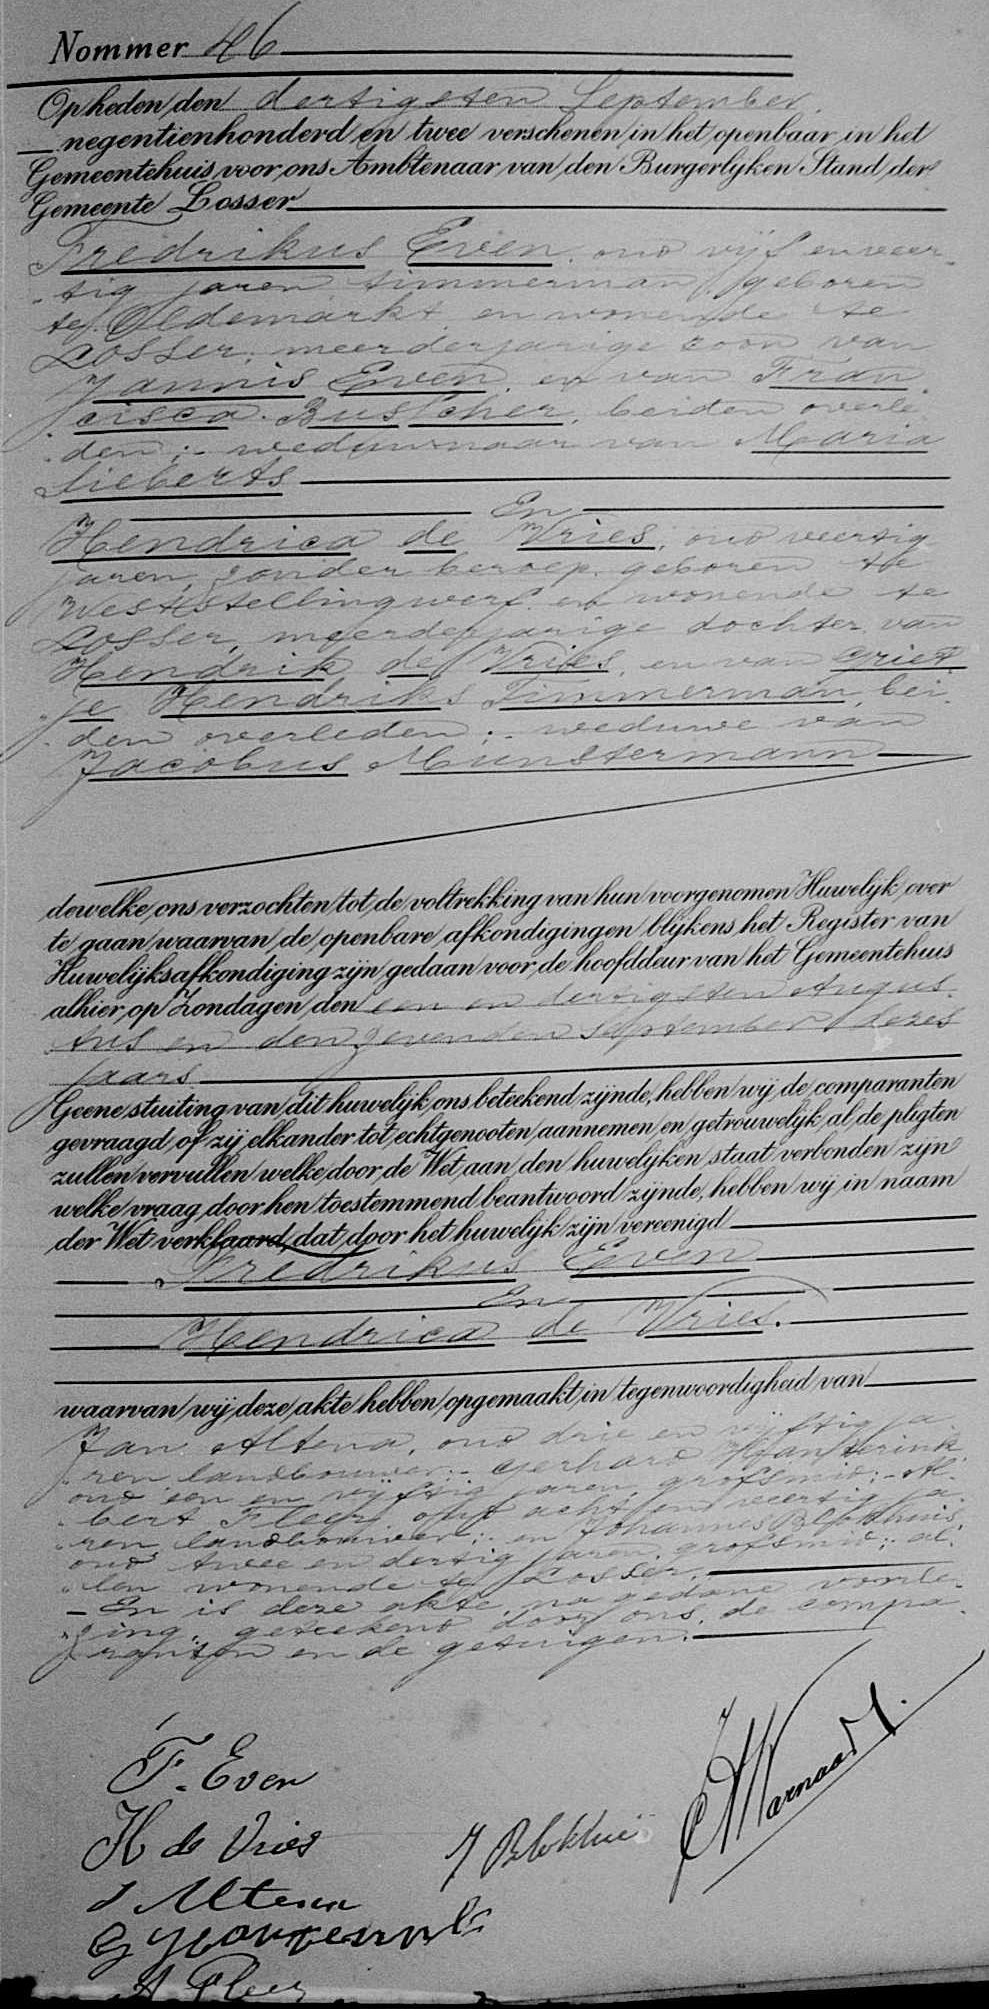 Nommer 46
Op heden den dertigsten September
negentienhonderd en twee verschenen in het openbaar in het
Gemeentehuis voor ons Ambtenaar van den Burgerlyken Stand der
Gemeente Losser
Fredrikus Even, oud vijf en veer-
tig jaren timmerman, geboren
te Oldemarkt en wonende te
Losser, meerderjarige zoon van
Jannis Even, en van Fran
cisca Busscher, beiden overle
den; weduwnaar van Maria
Sieberts
En
Hendrica de Vries, oud veertig
jaren, zonder beroep, geboren te
Weststellingwerf en wonende te
Losser, meerderjarige dochter van
Hendrik de Vries, en van Griet
je Hendriks Timmerman, bei
den overleden; weduwe van
Jacobus Munstermann
dewelke ons verzochten tot de voltrekking van hun voorgenomen Huwelijk over
te gaan waarvan de openbare afkondigingen blijkens het Register van
Huwelijksafkondiging zijn gedaan voor de hoofddeur van het Gemeentehuis
alhier op Zondagen den een en dertigsten Augus-
tus en den zevenden September dezes
jaars
Geene stuiting van dit huwelijk ons beteekend zijnde, hebben wij de comparanten
gevraagd of zij elkander tot echtgenooten aannemen en getrouwelijk al de pligten
zullen vervullen welke door de Wet aan den huwelijken staat verbonden zijn
welke vraag door hen toestemmend beantwoord zijnde, hebben wij in naam
der Wet verklaard, dat door het huwelijk zijn vereenigd
Fredrikus Even
En
Hendrica de Vries.
waarvan wij deze akte hebben opgemaakt in tegenwoordigheid van
Jan Altena, oud drie en vijftig ja
ren landbouwer; Gerhard
oud een en vijftig jaren, grofsmid; Al-
bert Fleer oud acht en veertig ja
ren landbouwer; en Johannes Blokhuis
oud twee en dertig jaren, grofsmid; al-
len wonende te Losser.
En is deze akte, na gedane voorle-
zing, geteekend door ons, de compa-
ranten en de getuigen.
F. Even
H de Vries
J Blokhuis
J Altena
A Fleer